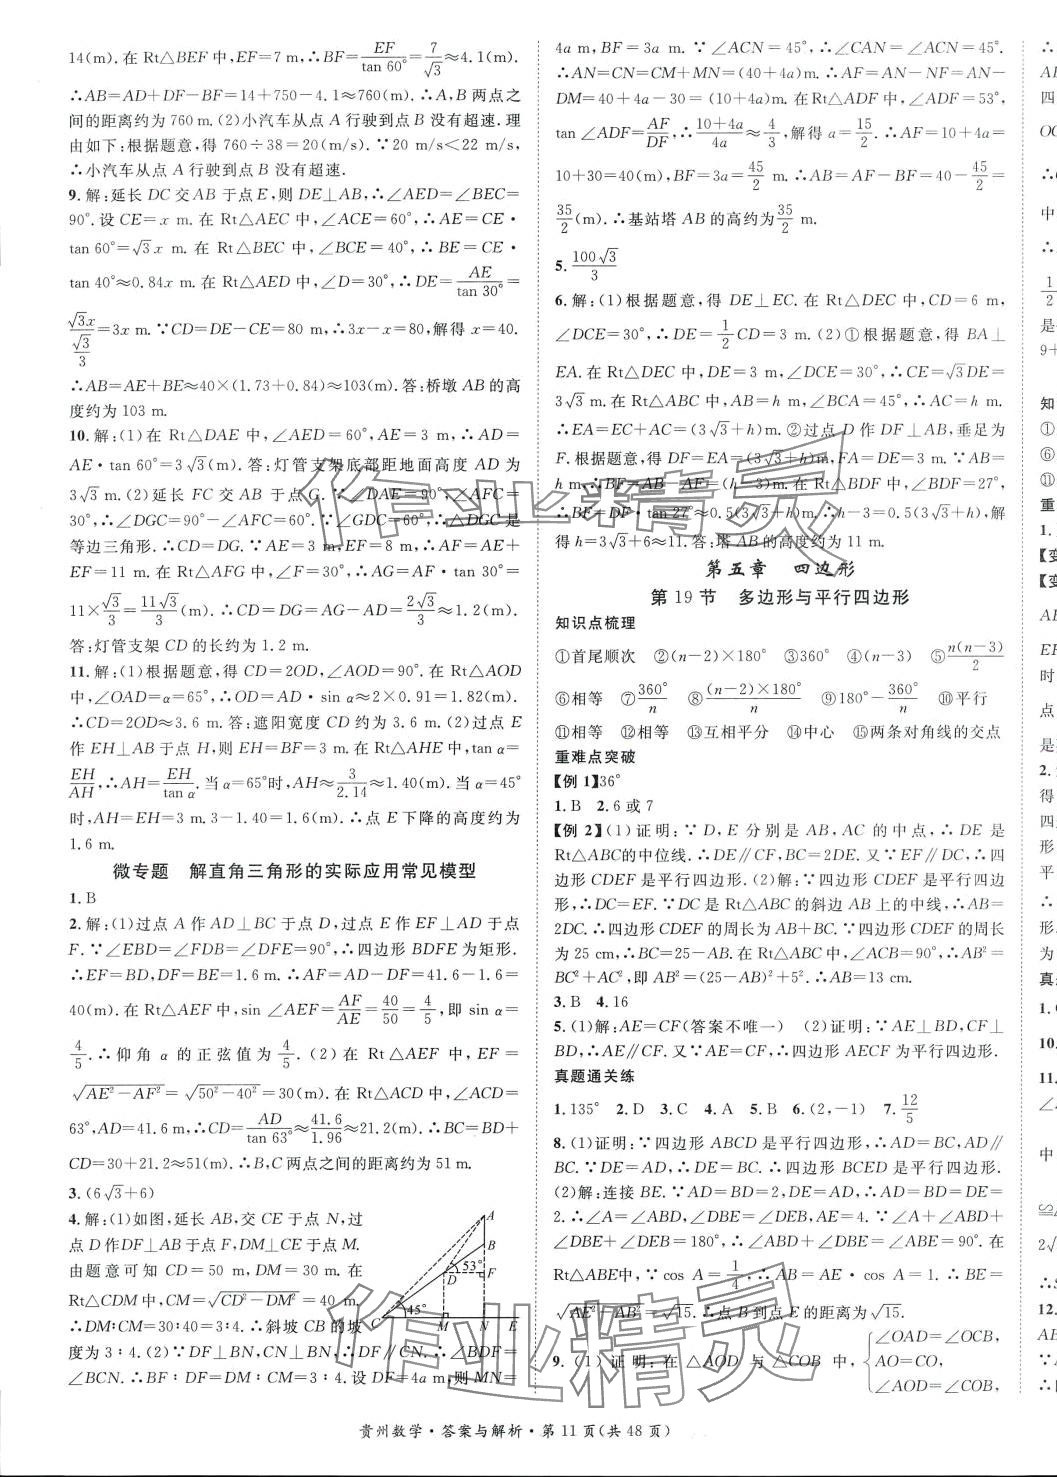 14(m). 在 Rt△BEF 中,EF=7 m,∴BF=EF/tan 60°=7/√3≈4.1(m).
∴AB=AD+DF-BF=14+750-4.1≈760(m). ∴A,B 两点之
间的距离约为 760 m. (2)小汽车从点 A 行驶到点 B 没有超速. 理
由如下:根据题意,得 760÷38=20(m/s). ∵20 m/s<22 m/s,
∴小汽车从点 A 行驶到点 B 没有超速.
9. 解:延长 DC 交 AB 于点 E,则 DE⊥AB,∴∠AED=∠BEC=
90°. 设 CE=x m. 在 Rt△AEC 中,∠ACE=60°,∴AE=CE·
tan 60°=√3x m. 在 Rt△BEC 中,∠BCE=40°,∴BE=CE·
tan 40°≈0.84x m. 在 Rt△AED 中,∠D=30°,∴DE=AE/tan 30°=
√3x/(√3/3)=3x m. ∵CD=DE-CE=80 m,∴3x-x=80,解得 x=40.
∴AB=AE+BE≈40×(1.73+0.84)≈103(m). 答:桥墩 AB 的高
度约为 103 m.
10. 解:(1)在 Rt△DAE 中,∠AED=60°,AE=3 m,∴AD=
AE·tan 60°=3√3(m). 答:灯管支架底部距地面高度 AD 为
3√3 m. (2)延长 FC 交 AB 于点 G. ∵∠DAE=90°,∠AFC=
30°,∴∠DGC=90°-∠AFC=60°. ∵∠GDC=60°,∴△DGC 是
等边三角形. ∴CD=DG. ∵AE=3 m,EF=8 m,∴AF=AE+
EF=11 m. 在 Rt△AFG 中,∠F=30°,∴AG=AF·tan 30°=
11×√3/3=11√3/3(m). ∴CD=DG=AG-AD=2√3/3≈1.2(m).
答:灯管支架 CD 的长约为 1.2 m.
11. 解:(1)根据题意,得 CD=2OD,∠AOD=90°. 在 Rt△AOD
中,∠OAD=∠α=65°,∴OD=AD·sin α≈2×0.91=1.82(m).
∴CD=2OD≈3.6 m. 答:遮阳宽度 CD 约为 3.6 m. (2)过点 E
作 EH⊥AB 于点 H,则 EH=BF=3 m. 在 Rt△AHE 中,tan α=
EH/AH,∴AH=EH/tan α. 当 α=65°时,AH≈3/2.14≈1.40(m). 当 α=45°
时,AH=EH=3 m. 3-1.40=1.6(m). ∴点 E 下降的高度约为
1.6 m.
微专题 解直角三角形的实际应用常见模型
1. B
2. 解:(1)过点 A 作 AD⊥BC 于点 D,过点 E 作 EF⊥AD 于点
F. ∵∠EBD=∠FDB=∠DFE=90°,∴四边形 BDFE 为矩形.
∴EF=BD,DF=BE=1.6 m. ∴AF=AD-DF=41.6-1.6=
40(m). 在 Rt△AEF 中,sin∠AEF=AF/AE=40/50=4/5,即 sin α=
4/5. ∴仰角 α 的正弦值为 4/5. (2)在 Rt△AEF 中,EF=
√(AE²-AF²)=√(50²-40²)=30(m). 在 Rt△ACD 中,∠ACD=
63°,AD=41.6 m,∴CD=AD/tan 63°≈41.6/1.96≈21.2(m). ∴BC=BD+
CD=30+21.2≈51(m). ∴B,C 两点之间的距离约为 51 m.
3. (6√3+6)
4. 解:(1)如图,延长 AB,交 CE 于点 N,过
点 D 作 DF⊥AB 于点 F,DM⊥CE 于点 M.
由题意可知 CD=50 m,DM=30 m. 在
Rt△CDM 中,CM=√(CD²-DM²)=40 m.
∴DM∶CM=30∶40=3∶4. ∴斜坡 CB 的坡
度为 3∶4. (2)∵DF⊥BN,CN⊥BN,∴DF∥CN. ∴∠BDF=
∠BCN. ∴BF∶DF=DM∶CM=3∶4. 设 DF=4a m,则 MN=
A
B
53°
D
F
45°
C
M
N
E
4a m,BF=3a m. ∵∠ACN=45°,∴∠CAN=∠ACN=45°.
∴AN=CN=CM+MN=(40+4a)m. ∴AF=AN-NF=AN-
DM=40+4a-30=(10+4a)m. 在 Rt△ADF 中,∠ADF=53°,
tan∠ADF=AF/DF,∴(10+4a)/4a≈4/3,解得 a=15/2. ∴AF=10+4a=
10+30=40(m),BF=3a=45/2 m. ∴AB=AF-BF=40-45/2=
35/2(m). ∴基站塔 AB 的高约为 35/2 m.
5. 100√3/3
6. 解:(1)根据题意,得 DE⊥EC. 在 Rt△DEC 中,CD=6 m,
∠DCE=30°,∴DE=1/2CD=3 m. (2)①根据题意,得 BA⊥
EA. 在 Rt△DEC 中,DE=3 m,∠DCE=30°,∴CE=√3DE=
3√3 m. 在 Rt△ABC 中,AB=h m,∠BCA=45°,∴AC=h m.
∴EA=EC+AC=(3√3+h)m. ②过点 D 作 DF⊥AB,垂足为
F. 根据题意,得 DF=EA=(3√3+h)m,FA=DE=3 m. ∵AB=
h m,∴BF=AB-AF=(h-3)m. 在 Rt△BDF 中,∠BDF=27°,
∴BF=DF·tan 27°≈0.5(3√3+h)m. ∴h-3=0.5(3√3+h),解
得 h=3√3+6≈11. 答:塔 AB 的高度约为 11 m.
第五章 四边形
第 19 节 多边形与平行四边形
知识点梳理
①首尾顺次 ②(n-2)×180° ③360° ④(n-3) ⑤n(n-3)/2
⑥相等 ⑦360°/n ⑧(n-2)×180°/n ⑨180°-360°/n ⑩平行
⑪相等 ⑫相等 ⑬互相平分 ⑭中心 ⑮两条对角线的交点
重难点突破
【例 1】36°
1. B 2. 6 或 7
【例 2】(1)证明:∵D,E 分别是 AB,AC 的中点,∴DE 是
Rt△ABC的中位线. ∴DE∥CF,BC=2DE. 又∵EF∥DC,∴四
边形 CDEF 是平行四边形. (2)解:∵四边形 CDEF 是平行四边
形,∴DC=EF. ∵CD 是 Rt△ABC 的斜边 AB 上的中线,∴AB=
2DC. ∴四边形 CDEF 的周长为 AB+BC. ∵四边形 CDEF 的周长
为 25 cm,∴BC=25-AB. 在 Rt△ABC 中,∠ACB=90°,∴AB²=
BC²+AC²,即 AB²=(25-AB)²+5². ∴AB=13 cm.
3. B 4. 16
5. (1)解:AE=CF(答案不唯一) (2)证明:∵AE⊥BD,CF⊥
BD,∴AE∥CF. 又∵AE=CF,∴四边形 AECF 为平行四边形.
真题通关练
1. 135° 2. D 3. C 4. A 5. B 6. (2,-1) 7. 12/5
8. (1)证明:∵四边形 ABCD 是平行四边形,∴AD=BC,AD∥
BC. ∵DE=AD,∴DE=BC. ∴四边形 BCED 是平行四边形.
(2)解:连接 BE. ∵AD=BD=2,DE=AD,∴AD=BD=DE=
2. ∴∠A=∠ABD,∠DBE=∠DEB,AE=4. ∵∠A+∠ABD+
∠DBE+∠DEB=180°,∴∠ABD+∠DBE=∠ABE=90°. 在
Rt△ABE中,∵cos A=1/4,∴AB=AE·cos A=1. ∴BE=
√(AE²-AB²)=√15. ∴点 B 到点 E 的距离为√15.
9. (1)证明:在△AOD 与△COB 中,{∠OAD=∠OCB,
AO=CO,
∠AOD=∠COB,
贵州数学·答案与解析·第 11 页(共 48 页)
作业精灵
作业精灵